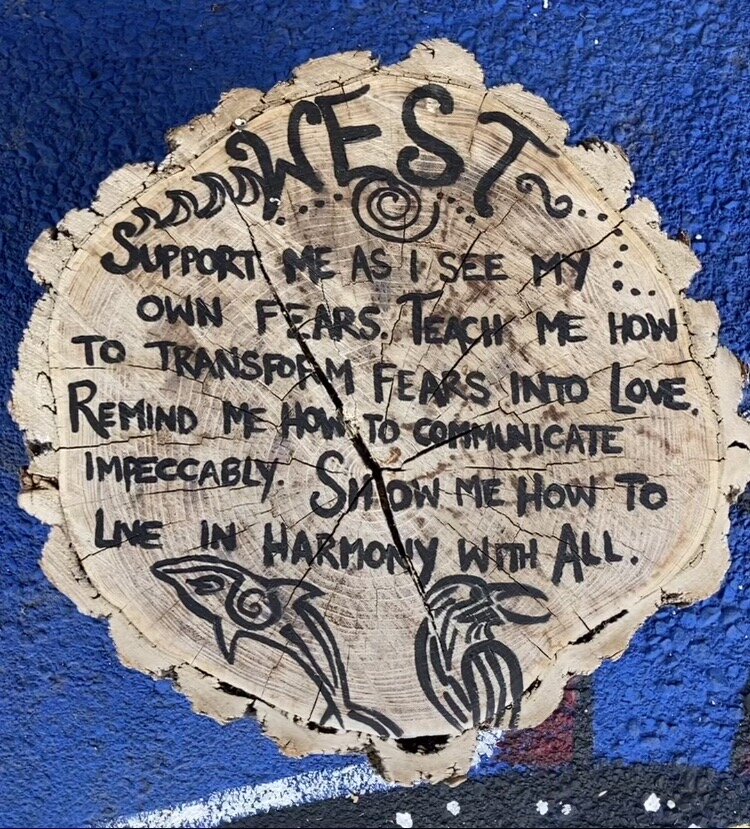 WEST
SUPPORT ME AS I SEE MY
OWN FEARS. TEACH ME HOW
TO TRANSFORM FEARS INTO LOVE.
REMIND ME HOW TO COMMUNICATE
IMPECCABLY. SHOW ME HOW TO
LIVE IN HARMONY WITH ALL.